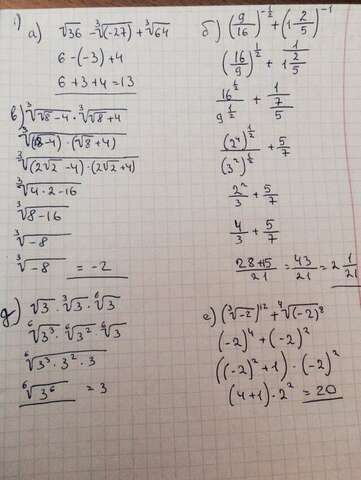 1)
а) √36 − ³√(-27) + ³√64
6 − (-3) + 4
6 + 3 + 4 = 13
б) (9/16)^(-1/2) + (1 2/5)^(-1)
(16/9)^(1/2) + 1/(1 2/5)
16^(1/2)/9^(1/2) + 1/(7/5)
(2⁴)^(1/2)/(3²)^(1/2) + 5/7
2²/3 + 5/7
4/3 + 5/7
(28+15)/21 = 43/21 = 2 1/21
в) ³√(√8 − 4) · ³√(√8 + 4)
³√((√8 − 4) · (√8 + 4))
³√((2√2 − 4) · (2√2 + 4))
³√(4 · 2 − 16)
³√(8 − 16)
³√(−8)
³√(−8) = −2
д) √3 · ³√3 · ⁶√3
⁶√3³ · ⁶√3² · ⁶√3
⁶√(3³ · 3² · 3)
⁶√3⁶ = 3
е) (³√-2)¹² + ⁴√(-2)⁸
(-2)⁴ + (-2)²
((-2)² + 1) · (-2)²
(4+1) · 2² = 20